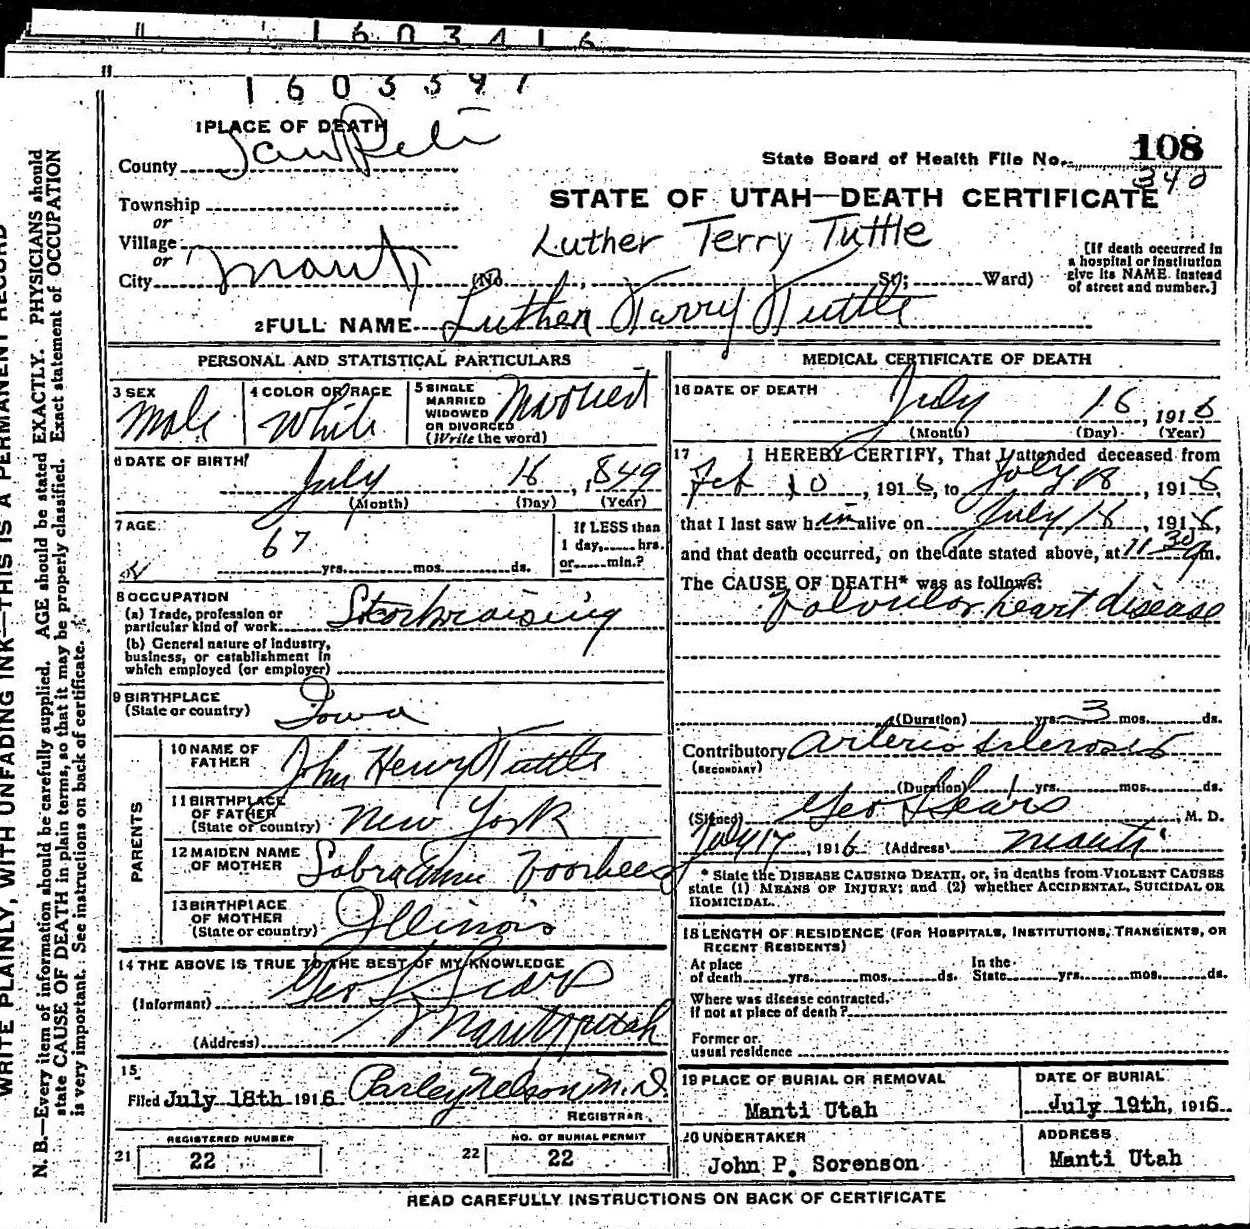 1603416
1603397
1 PLACE OF DEATH
County SanPete
State Board of Health File No. 108
240
STATE OF UTAH—DEATH CERTIFICATE
Township
or
Village
or
City Manti (No. , St; Ward)
Luther Terry Tuttle
[If death occurred in
a hospital or institution
give its NAME instead
of street and number.]
2 FULL NAME Luther Tarry Tuttle
PERSONAL AND STATISTICAL PARTICULARS
3 SEX
Male
4 COLOR OR RACE
White
5 SINGLE
MARRIED
WIDOWED
OR DIVORCED
(Write the word)
Married
6 DATE OF BIRTH
July 16, 1849
(Month) (Day) (Year)
7 AGE
67
yrs. mos. ds.
If LESS than
1 day, hrs.
or min.?
8 OCCUPATION
(a) Trade, profession or
particular kind of work
(b) General nature of industry,
business, or establishment in
which employed (or employer)
9 BIRTHPLACE
(State or country) Iowa
PARENTS
10 NAME OF
FATHER John Henry Tuttle
11 BIRTHPLACE
OF FATHER
(State or country) New York
12 MAIDEN NAME
OF MOTHER Sabra Ann Voorhees
13 BIRTHPLACE
OF MOTHER
(State or country) Illinois
14 THE ABOVE IS TRUE TO THE BEST OF MY KNOWLEDGE
(Informant) Geo L Sears
(Address) Manti Utah
15
Filed July 18th 1916 Parley Nelson M.D.
REGISTRAR
REGISTERED NUMBER
21 22
NO. OF BURIAL PERMIT
22 22
MEDICAL CERTIFICATE OF DEATH
16 DATE OF DEATH
July 16, 1916
(Month) (Day) (Year)
17 I HEREBY CERTIFY, That I attended deceased from
Feb 10, 1916, to July 18, 1916,
that I last saw him alive on July 16, 1916,
and that death occurred, on the date stated above, at 11 30 m.
The CAUSE OF DEATH* was as follows:
Valvular heart disease
(Duration) yrs. 3 mos. ds.
Contributory Arterio sclerosis
(SECONDARY)
(Duration) 1 yrs. mos. ds.
(Signed) Geo L Sears, M. D.
July 17, 1916 (Address) Manti
* State the DISEASE CAUSING DEATH, or, in deaths from VIOLENT CAUSES
state (1) MEANS OF INJURY; and (2) whether ACCIDENTAL, SUICIDAL OR
HOMICIDAL.
18 LENGTH OF RESIDENCE (FOR HOSPITALS, INSTITUTIONS, TRANSIENTS, OR
RECENT RESIDENTS)
At place
of death yrs. mos. ds.
In the
State yrs. mos. ds.
Where was disease contracted.
if not at place of death?
Former or
usual residence
19 PLACE OF BURIAL OR REMOVAL
Manti Utah
DATE OF BURIAL
July 19th, 1916
20 UNDERTAKER
John P. Sorenson
ADDRESS
Manti Utah
READ CAREFULLY INSTRUCTIONS ON BACK OF CERTIFICATE
WRITE PLAINLY, WITH UNFADING INK—THIS IS A PERMANENT RECORD
N. B.—Every item of information should be carefully supplied. AGE should be stated EXACTLY. PHYSICIANS should
state CAUSE OF DEATH in plain terms, so that it may be properly classified. Exact statement of OCCUPATION
is very important. See instructions on back of certificate.